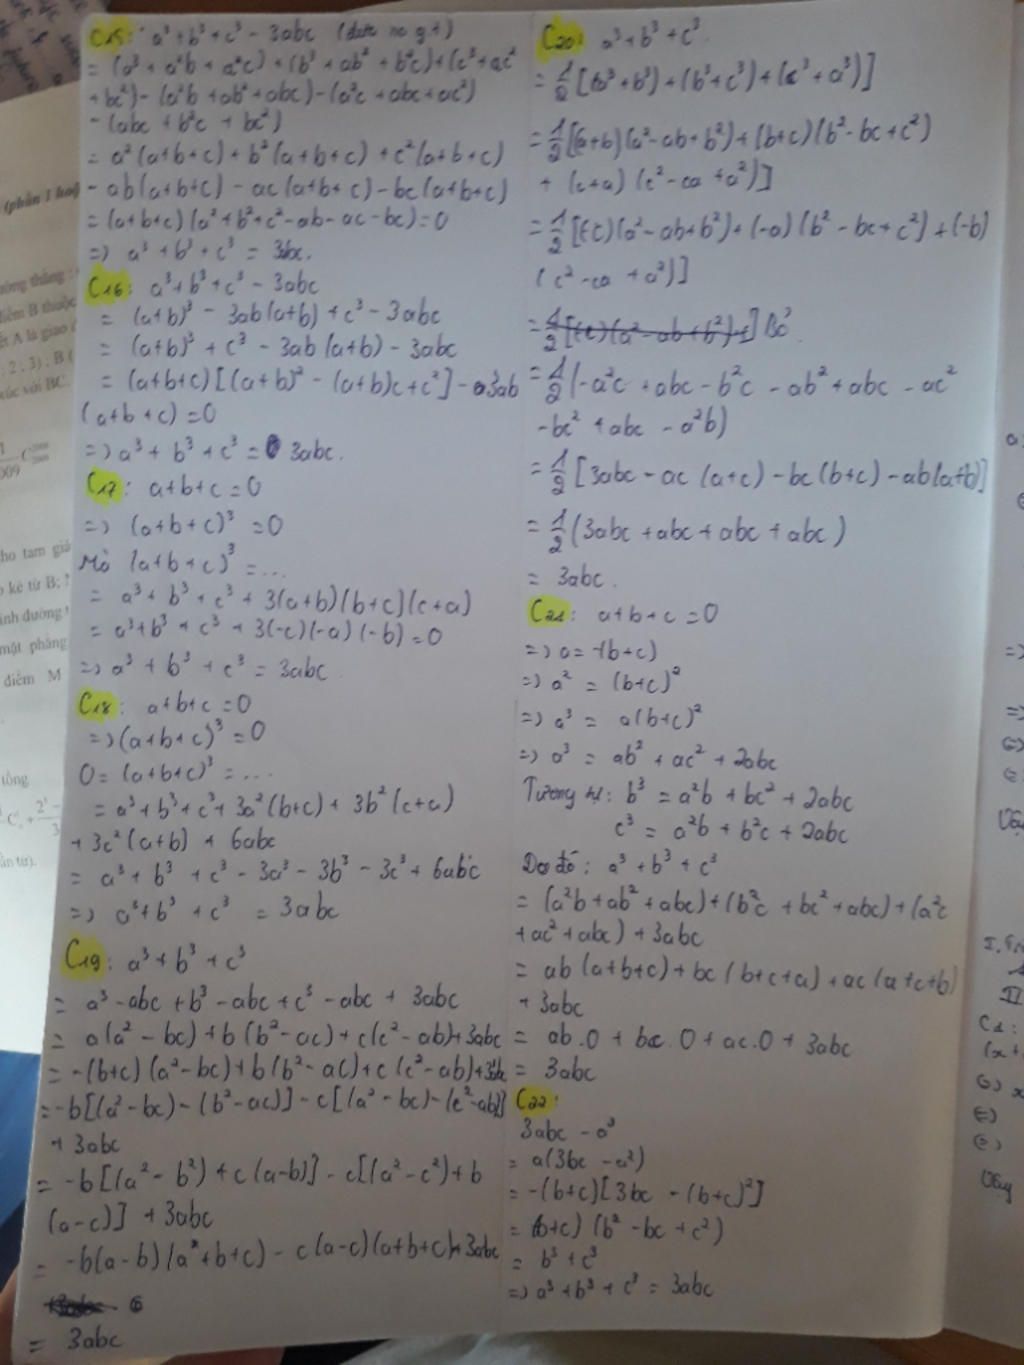 C15: a³ + b³ + c³ - 3abc (được no g.t)
= (a³ + a²b + a²c) + (b³ + ab² + b²c) + (c³ + ac²
+ bc²) - (a²b + ab² + abc) - (a²c + abc + ac²)
- (abc + b²c + bc²)
= a²(a+b+c) + b²(a+b+c) + c²(a+b+c)
- ab(a+b+c) - ac(a+b+c) - bc(a+b+c)
= (a+b+c)(a²+b²+c²-ab-ac-bc) = 0
=> a³ + b³ + c³ = 3abc.
C16: a³ + b³ + c³ - 3abc
= (a+b)³ - 3ab(a+b) + c³ - 3abc
= (a+b)³ + c³ - 3ab(a+b) - 3abc
= (a+b+c)[(a+b)² - (a+b)c + c²] - 3ab
(a+b+c) = 0
=> a³ + b³ + c³ = 3abc.
C17: a+b+c = 0
=> (a+b+c)³ = 0
Mà (a+b+c)³ = ...
= a³ + b³ + c³ + 3(a+b)(b+c)(c+a)
= a³ + b³ + c³ + 3(-c)(-a)(-b) = 0
=> a³ + b³ + c³ = 3abc
C18: a+b+c = 0
=> (a+b+c)³ = 0
0 = (a+b+c)³ = ...
= a³ + b³ + c³ + 3a²(b+c) + 3b²(c+a)
+ 3c²(a+b) + 6abc
= a³ + b³ + c³ - 3a³ - 3b³ - 3c³ + 6abc
=> a³ + b³ + c³ = 3abc
C19: a³ + b³ + c³
= a³ - abc + b³ - abc + c³ - abc + 3abc
= a(a² - bc) + b(b² - ac) + c(c² - ab) + 3abc
= -(b+c)(a² - bc) + b(b² - ac) + c(c² - ab) + 3abc
= -b[(a² - bc) - (b² - ac)] - c[(a² - bc) - (c² - ab)]
+ 3abc
= -b[(a² - b²) + c(a-b)] - c[(a² - c²) + b
(a-c)] + 3abc
= -b(a-b)(a+b+c) - c(a-c)(a+b+c) + 3abc
= 3abc
C20: a³ + b³ + c³.
= 1/2[(a³ + b³) + (b³ + c³) + (c³ + a³)]
= 1/2[(a+b)(a² - ab + b²) + (b+c)(b² - bc + c²)
+ (c+a)(c² - ca + a²)]
= 1/2[(-c)(a² - ab + b²) + (-a)(b² - bc + c²) + (-b)
(c² - ca + a²)]
= 1/2[(-c)(a² - ab + b²) + ] Bỏ
= 1/2(-a²c + abc - b²c - ab² + abc - ac²
- bc² + abc - a²b)
= 1/2[3abc - ac(a+c) - bc(b+c) - ab(a+b)]
= 1/2(3abc + abc + abc + abc)
= 3abc.
C21: a+b+c = 0
=> a = -(b+c)
=> a² = (b+c)²
=> a³ = a(b+c)²
=> a³ = ab² + ac² + 2abc
Tương tự: b³ = a²b + bc² + 2abc
c³ = a²b + b²c + 2abc
Do đó: a³ + b³ + c³
= (a²b + ab² + abc) + (b²c + bc² + abc) + (a²c
+ ac² + abc) + 3abc
= ab(a+b+c) + bc(b+c+a) + ac(a+c+b)
+ 3abc
= ab.0 + bc.0 + ac.0 + 3abc
= 3abc
C22:
3abc - a³
= a(3bc - a²)
= -(b+c)[3bc - (b+c)²]
= (b+c)(b² - bc + c²)
= b³ + c³
=> a³ + b³ + c³ = 3abc